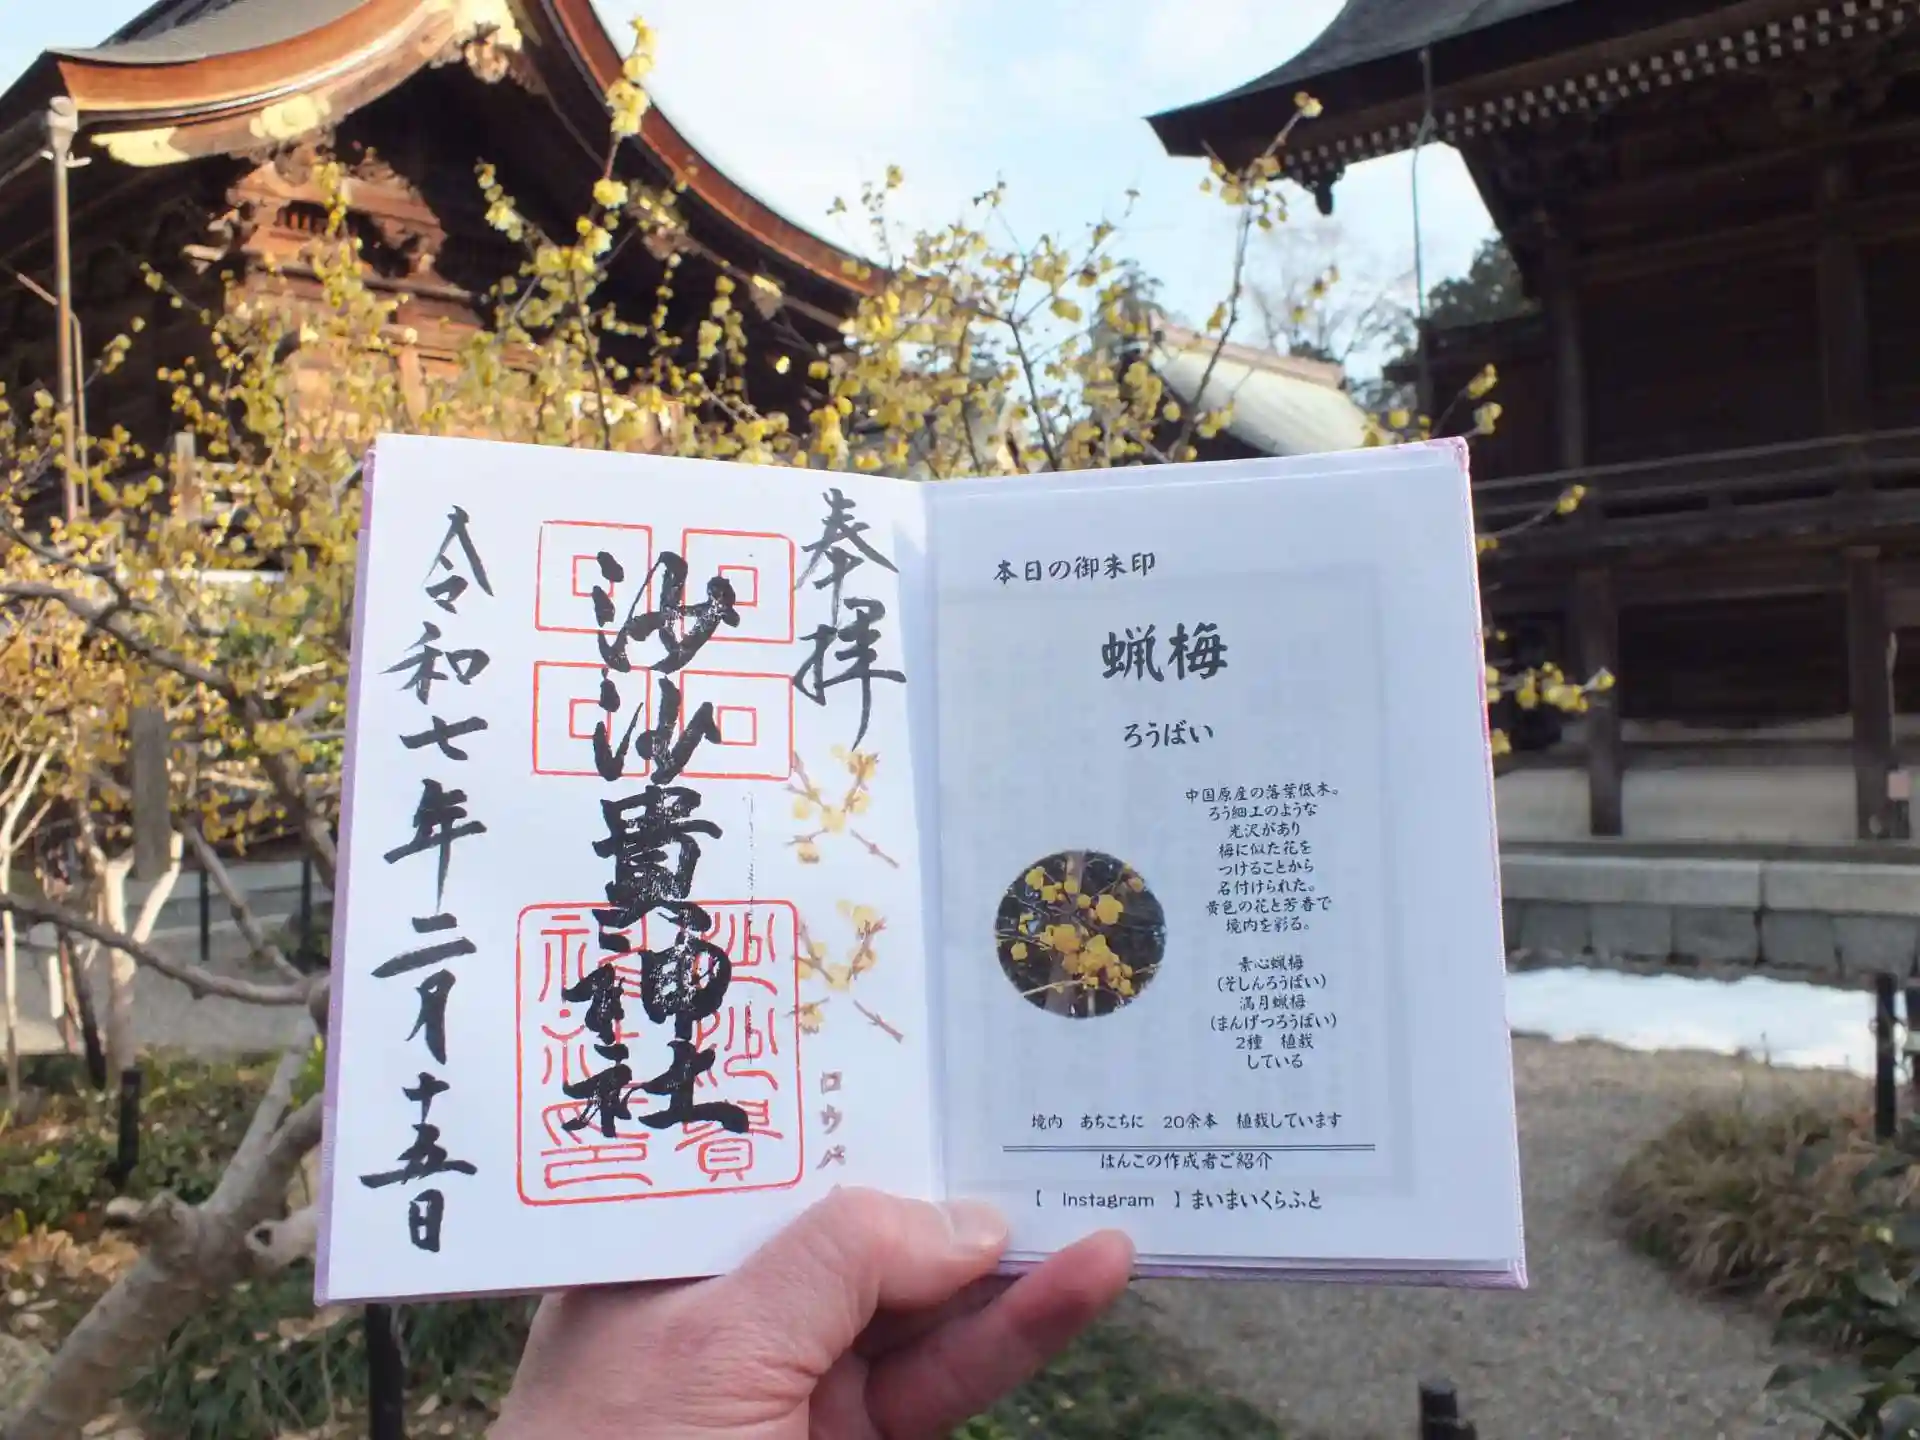 奉拝
沙沙貴神社
令和七年二月十五日
ロウバ
本日の御朱印
蝋梅
ろうばい
中国原産の落葉低木。
ろう細工のような
光沢があり
梅に似た花を
つけることから
名付けられた。
黄色の花と芳香で
境内を彩る。
素心蝋梅
(そしんろうばい)
満月蝋梅
(まんげつろうばい)
2種 植栽
している
境内 あちこちに 20余本 植栽しています
はんこの作成者ご紹介
【 Instagram 】まいまいくらふと